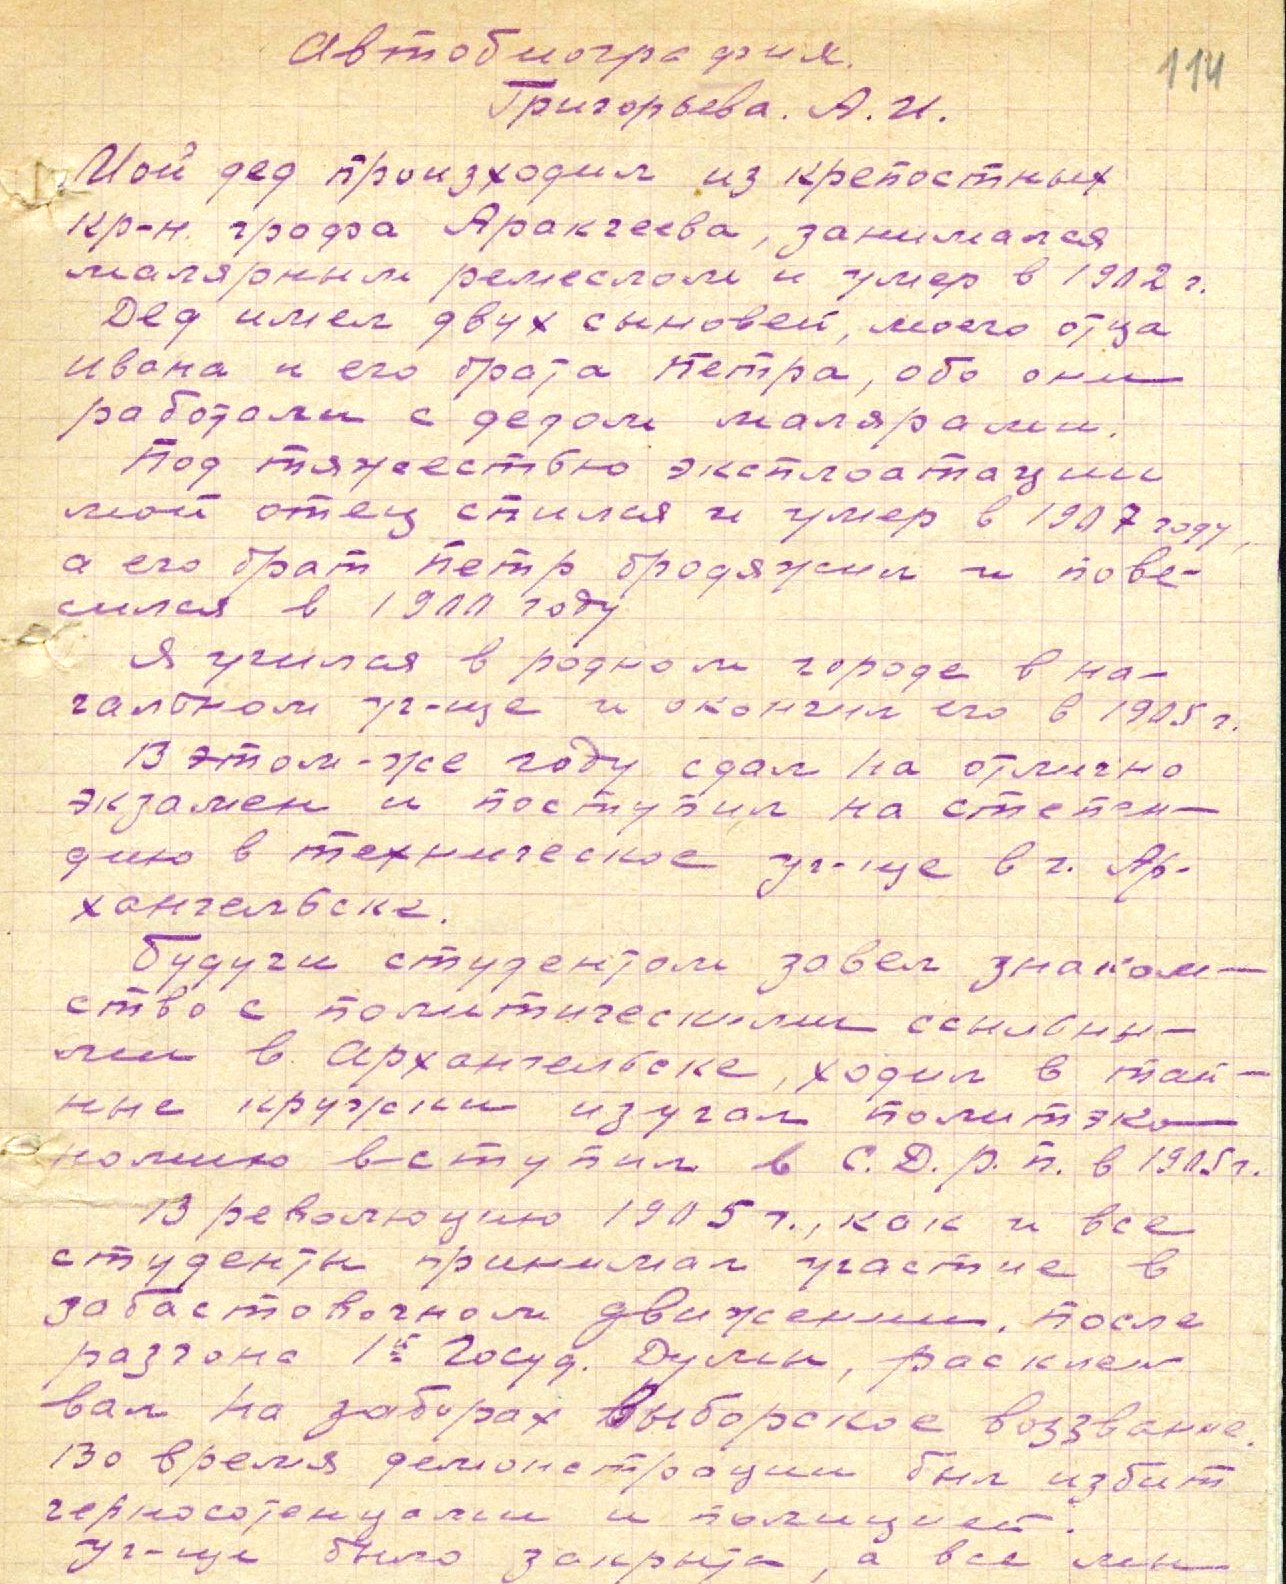 Автобиография.
114
Григорьева. А.И.
Мой дед произходил из крепостных
кр-н. графа Аракчеева, занимался
малярным ремеслом и умер в 1902 г.
Дед имел двух сыновей, моего отца
ивана и его брата Петра, оба они
работали с дедом малярами.
Под тяжестью эксплоатации
мой отец спился и умер в 1907 году,
а его брат Петр бродяжил и пове-
сился в 1900 году
Я учился в родном городе в на-
чальном уч-ще и окончил его в 1905 г.
В этом-же году сдал на отлично
экзамен и поступил на степен-
дию в техническое уч-ще в г. Ар-
хангельске.
Будучи студентом завел знаком-
ство с политическими ссыльны-
ми в Архангельске, ходил в тай-
ные кружки изучал политэко-
номию вступил в С.Д.р.п. в 1905 г.
В революцию 1905 г., как и все
студенты принимал участие в
забастовочном движении. после
разгона 1й Госуд. Думы, расклеи
вал на заборах Выборское воззвание.
Во время демонстрации был избит
черносотенцами и полицией.
Уч-ще было закрыто, а все мы